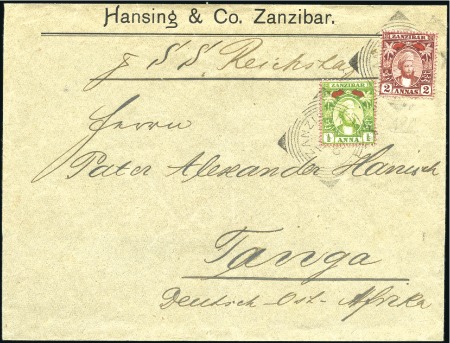 Hansing & Co. Zanzibar.
p S.S. Reichstag
ZANZIBAR
2 ANNAS 2
ZANZIBAR
½ ANNA ½
Herrn
Pater Alexander Hanisch
Tanga
Deutsch-Ost-Afrika